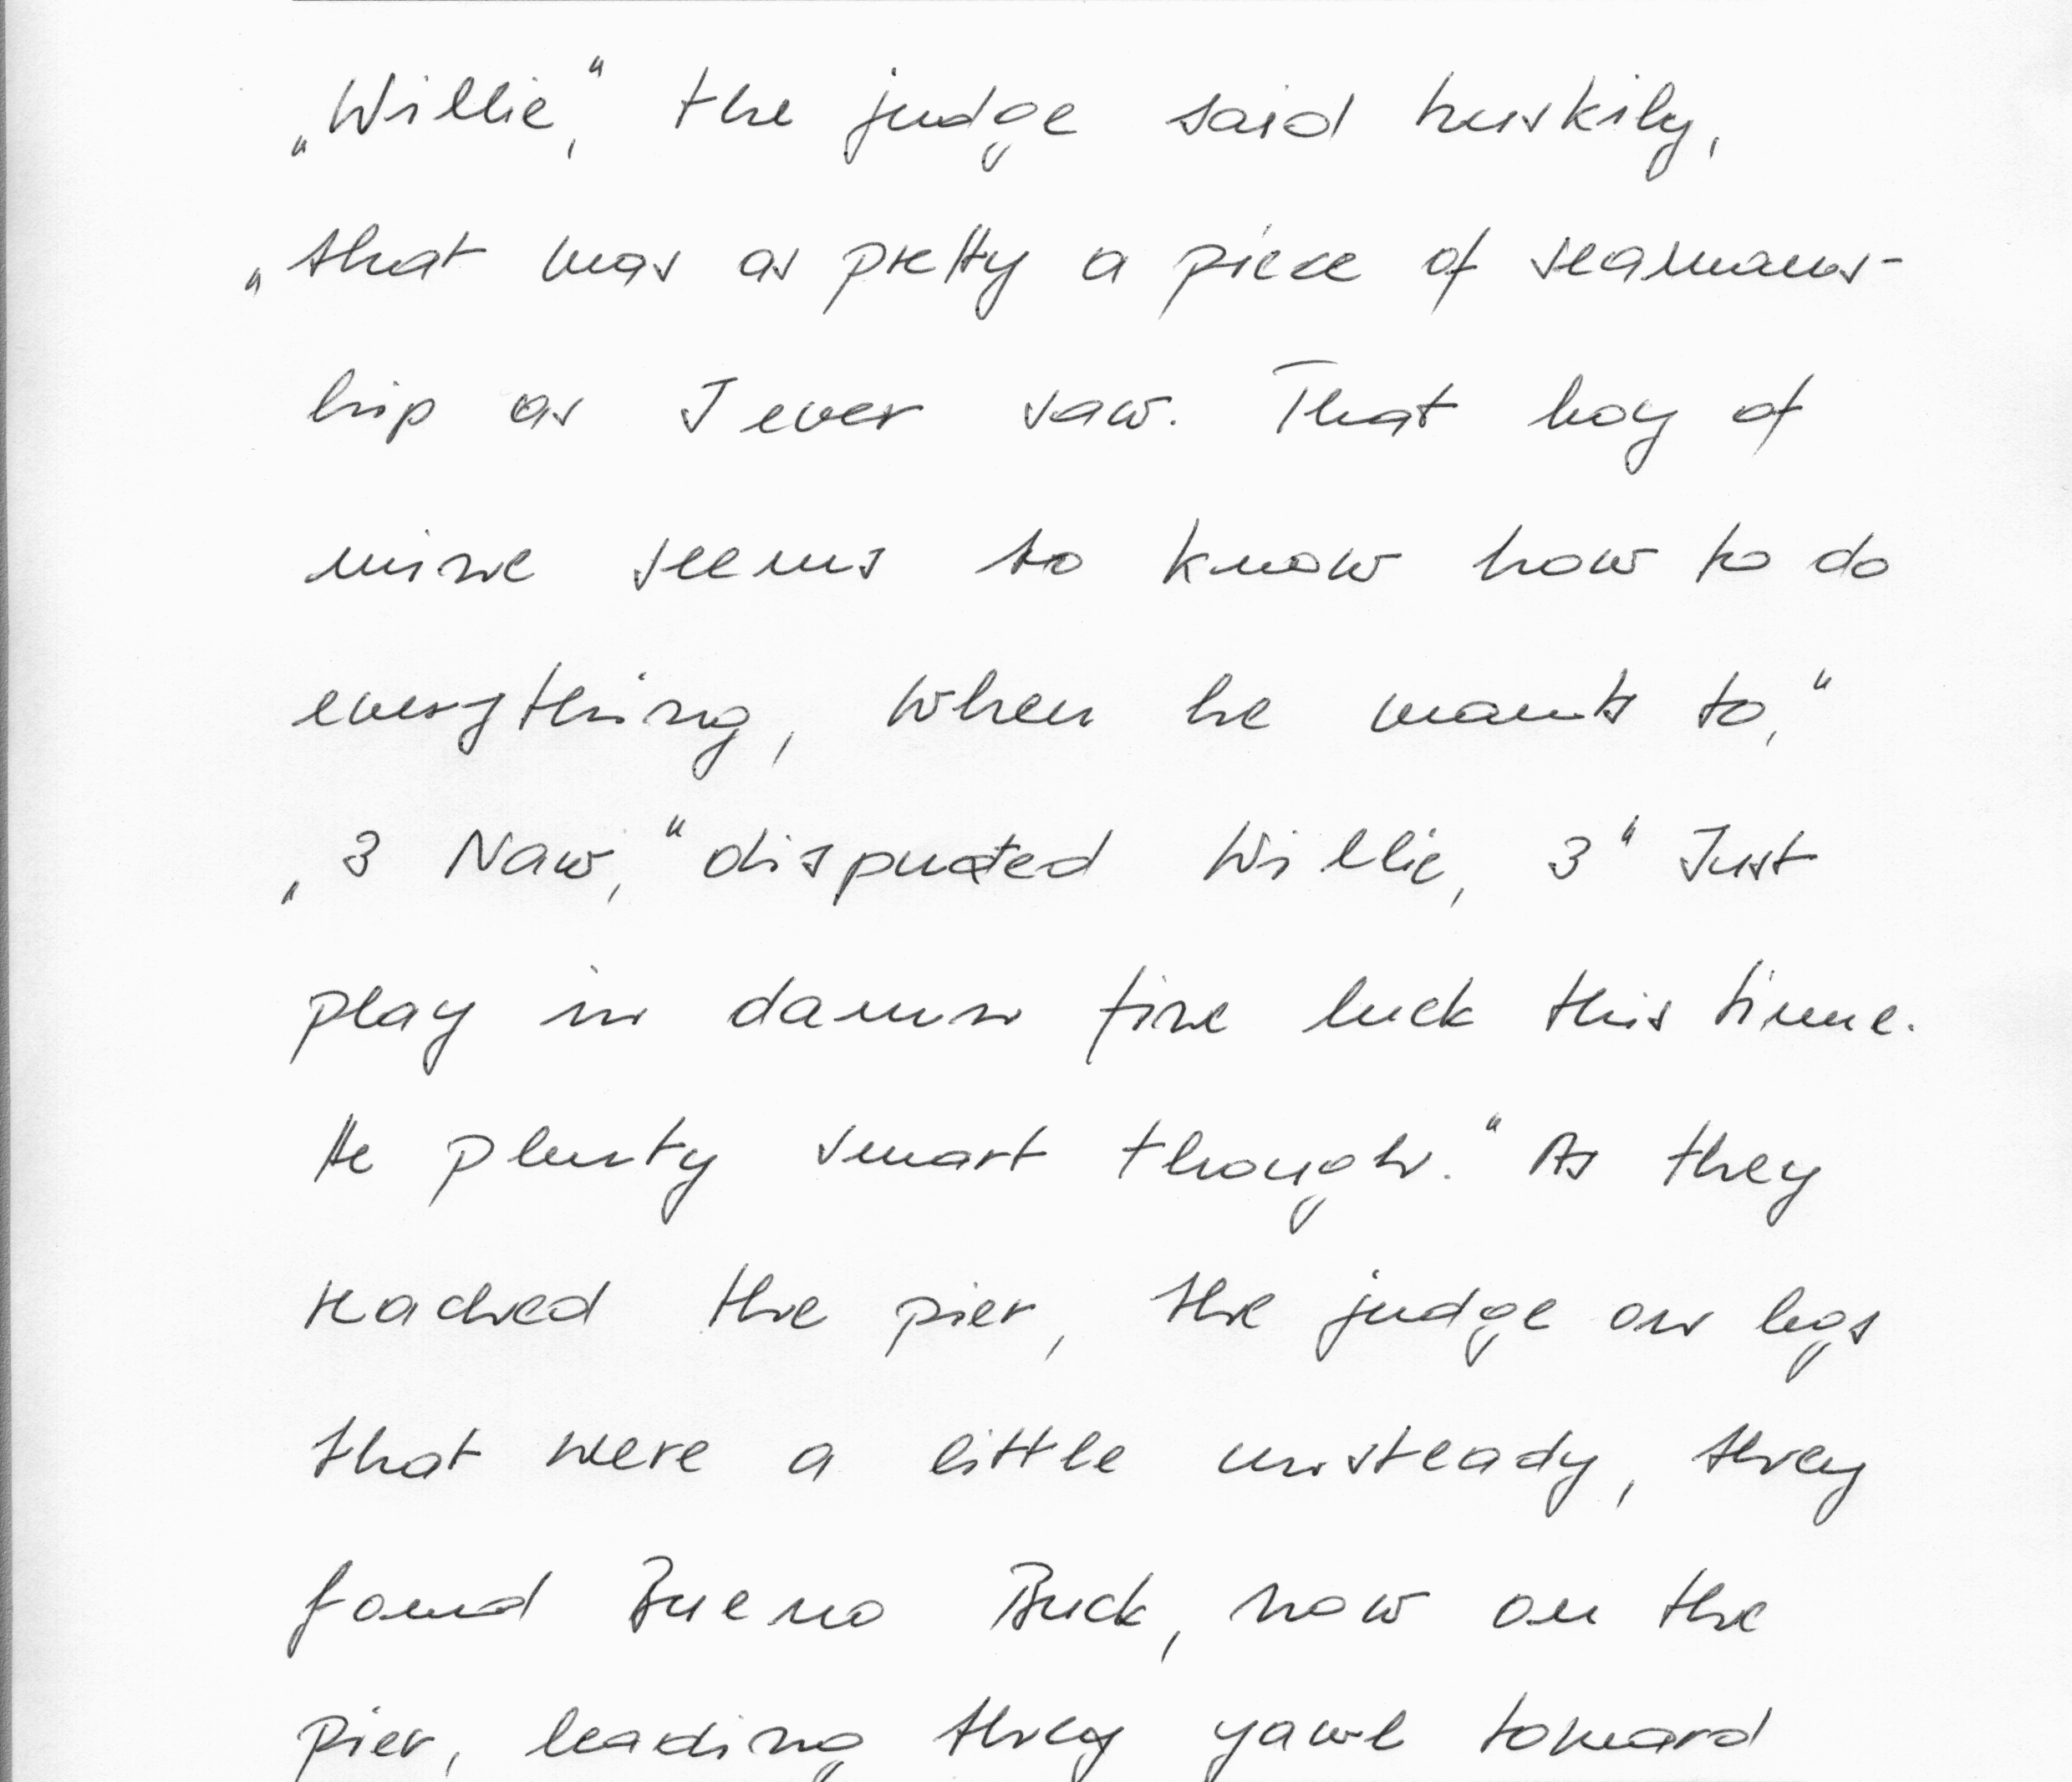 „Willie,“ the judge said huskily,
„that was as pretty a piece of seamans-
hip as I ever saw. That boy of
mine seems to know how to do
everything, when he wants to,“
„3 Naw,“ disputed Willie, 3“ Just
play in damn fine luck this time.
He plenty smart though.“ As they
reached the pier, the judge on legs
that were a little unsteady, they
found Bueno Buck, now on the
pier, leading they yawl toward